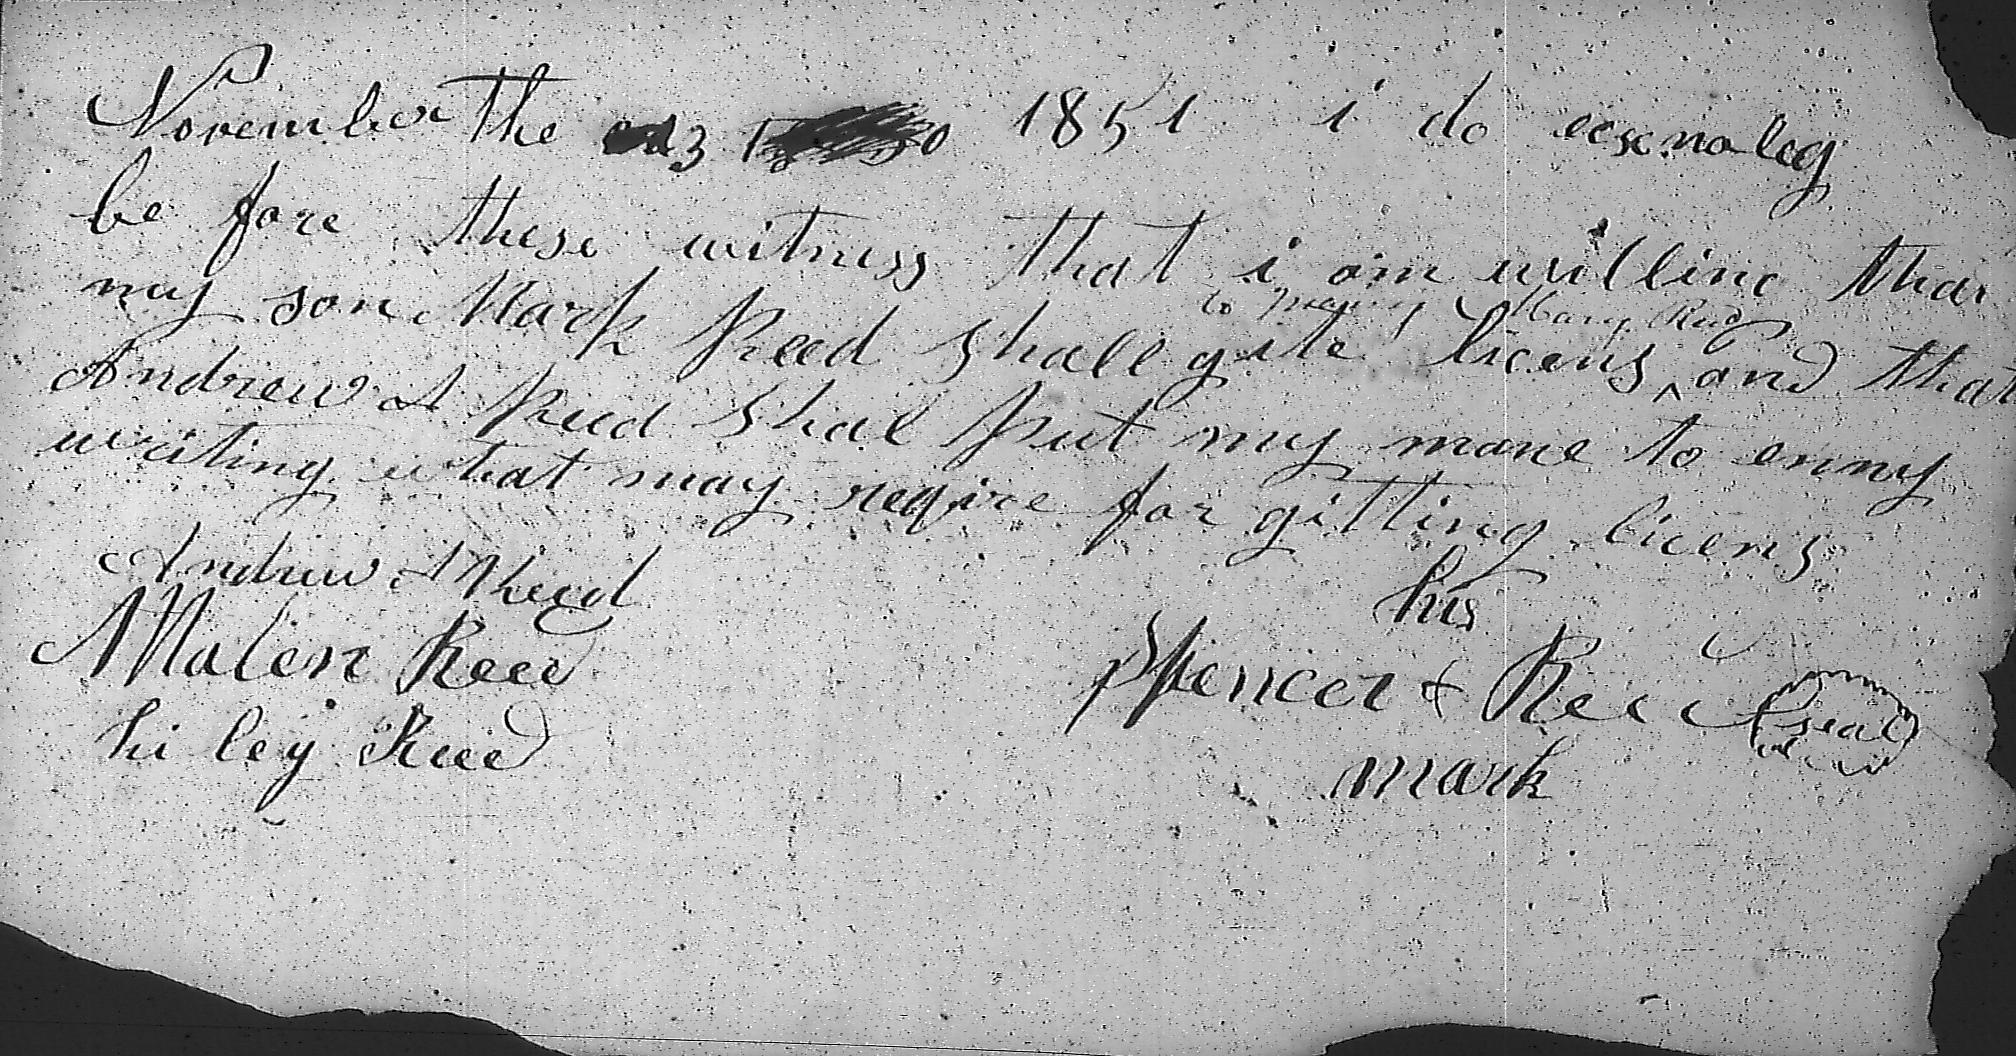 November the 3 1851 i do ecxnoleg
be fore these witness that i am willing that
to marry Mary Reed
my son Mark Reed shall gite licens ^ and that
Andrew A Reed shal put my mane to enny
writing what may reqire for gitting licens
Andrew A Reed
his
Malen Reed
Spencer + Reed seal
hi ley Reed
mark